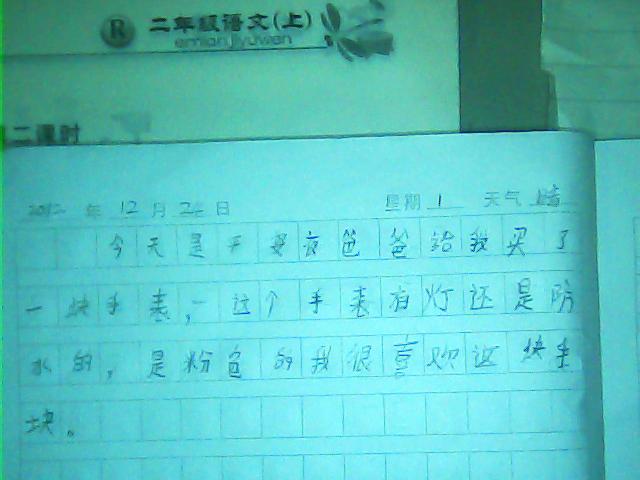 R 二年级语文(上)
二课时
2012 年 12 月 24 日 星期 1 天气 晴
今天是平安夜爸爸给我买了
一块手表,这个手表有灯还是防
水的,是粉色的我很喜欢这块手
块。